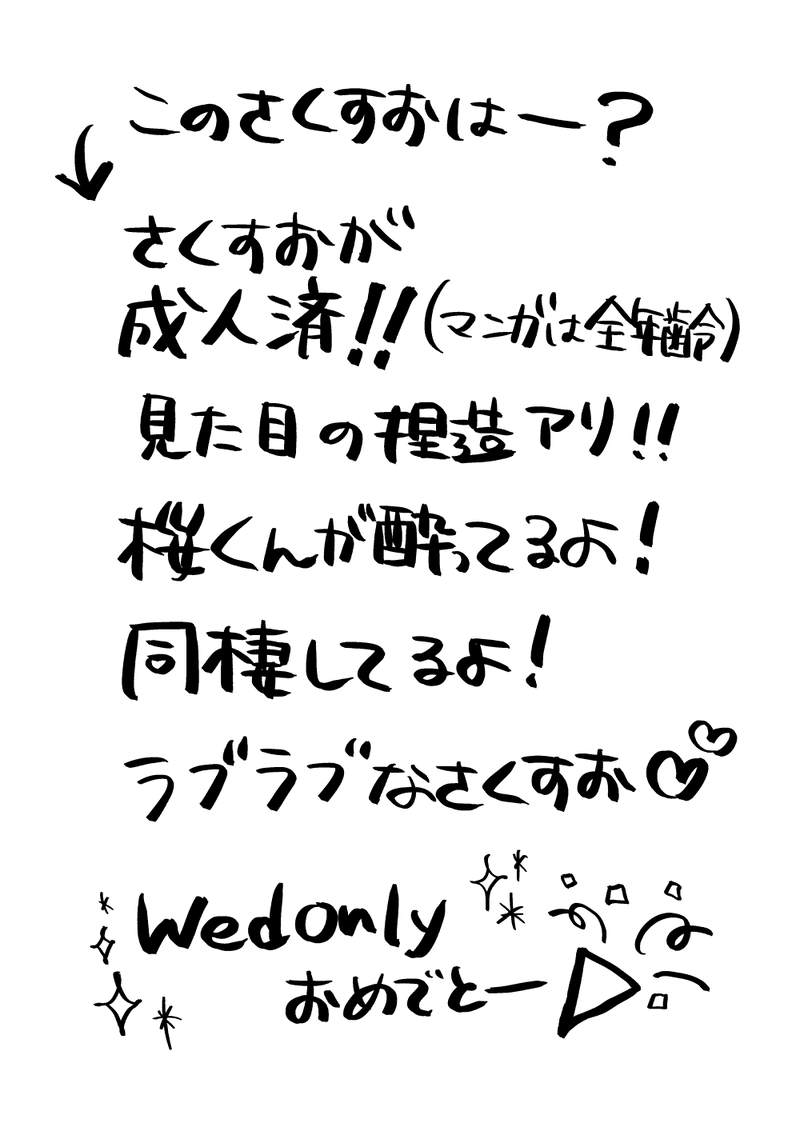 このさくすおはー？
さくすおが
成人済!!(マンガは全年齢)
見た目の捏造アリ!!
桜くんが酔ってるよ!
同棲してるよ!
ラブラブなさくすお♡♡
Wedonly
おめでとー